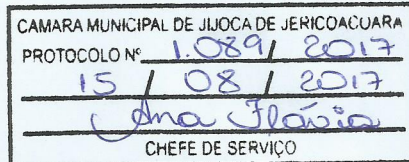 CAMARA MUNICIPAL DE JIJOCA DE JERICOACUARA
PROTOCOLO Nº 1.089 / 2017
15 / 08 / 2017
Ana Flávia
CHEFE DE SERVIÇO